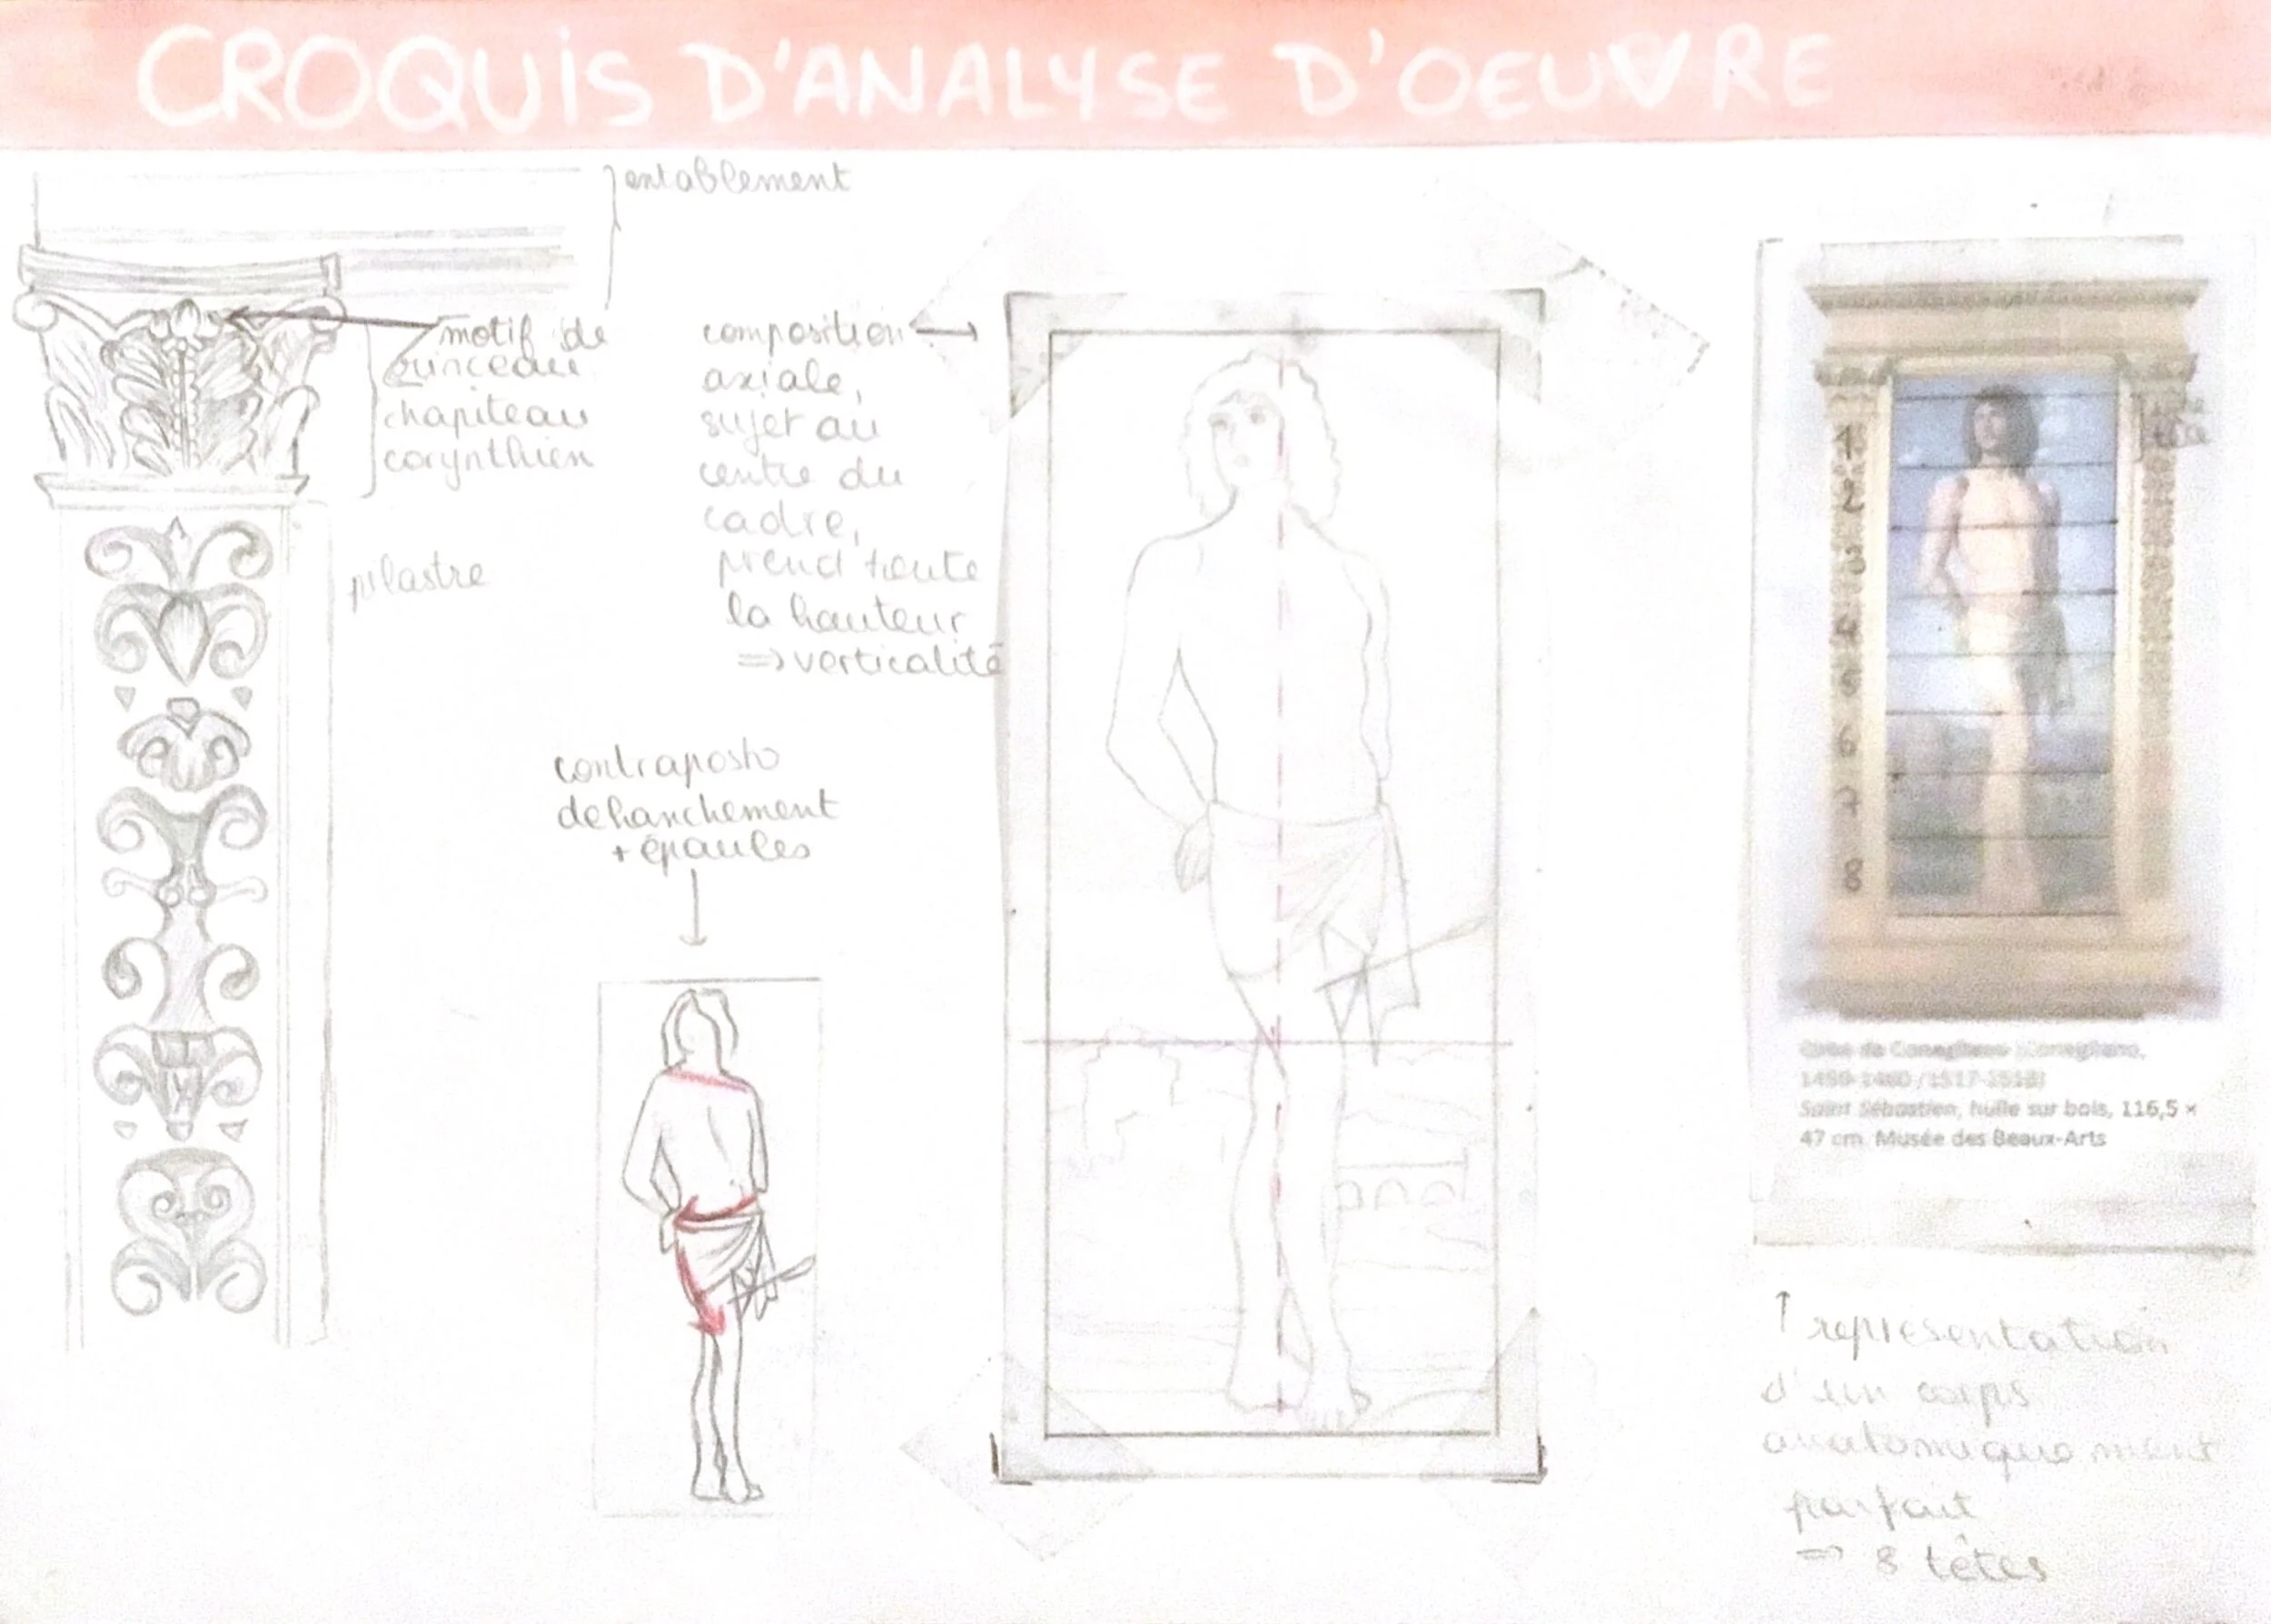 CROQUIS D'ANALYSE D'OEUVRE
entablement
motif de
rinceau
chapiteau
corynthien
pilastre
composition
axiale,
sujet au
centre du
cadre,
prend toute
la hauteur
=> verticalité
contraposto
dehanchement
+ épaules
1
2
3
4
5
6
7
8
tête
Cima da Conegliano (Conegliano,
1459-1460 /1517-1518)
Saint Sébastien, huile sur bois, 116,5 ×
47 cm. Musée des Beaux-Arts
↑ representation
d'un corps
anatomiquement
parfait
=> 8 têtes